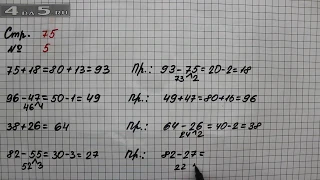 4 da 5.ru
Стр. 75
№ 5
75+18=80+13=93 Пр.: 93-75=20-2=18
73 2
96-47=50-1=49 Пр.: 49+47=80+16=96
46 1
38+26= 64 Пр.: 64-26=40-2=38
24 2
82-55=30-3=27 Пр.: 82-27=
52 3 22